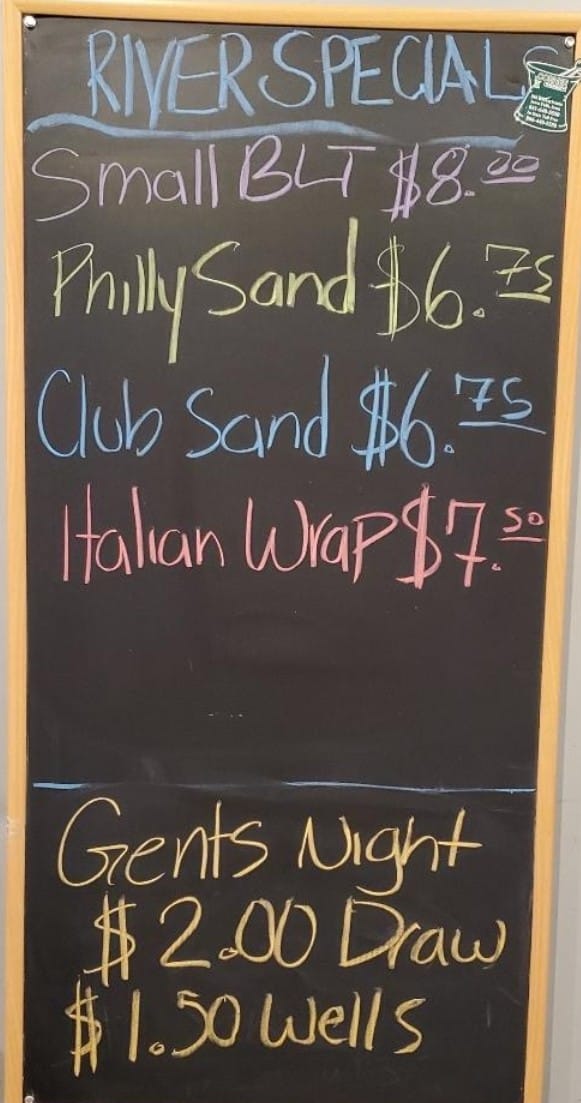 RIVER SPECIALS
Small BLT $8.00
Philly Sand $6.75
Club Sand $6.75
Italian Wrap $7.50
Gents Night
$2.00 Draw
$1.50 Wells